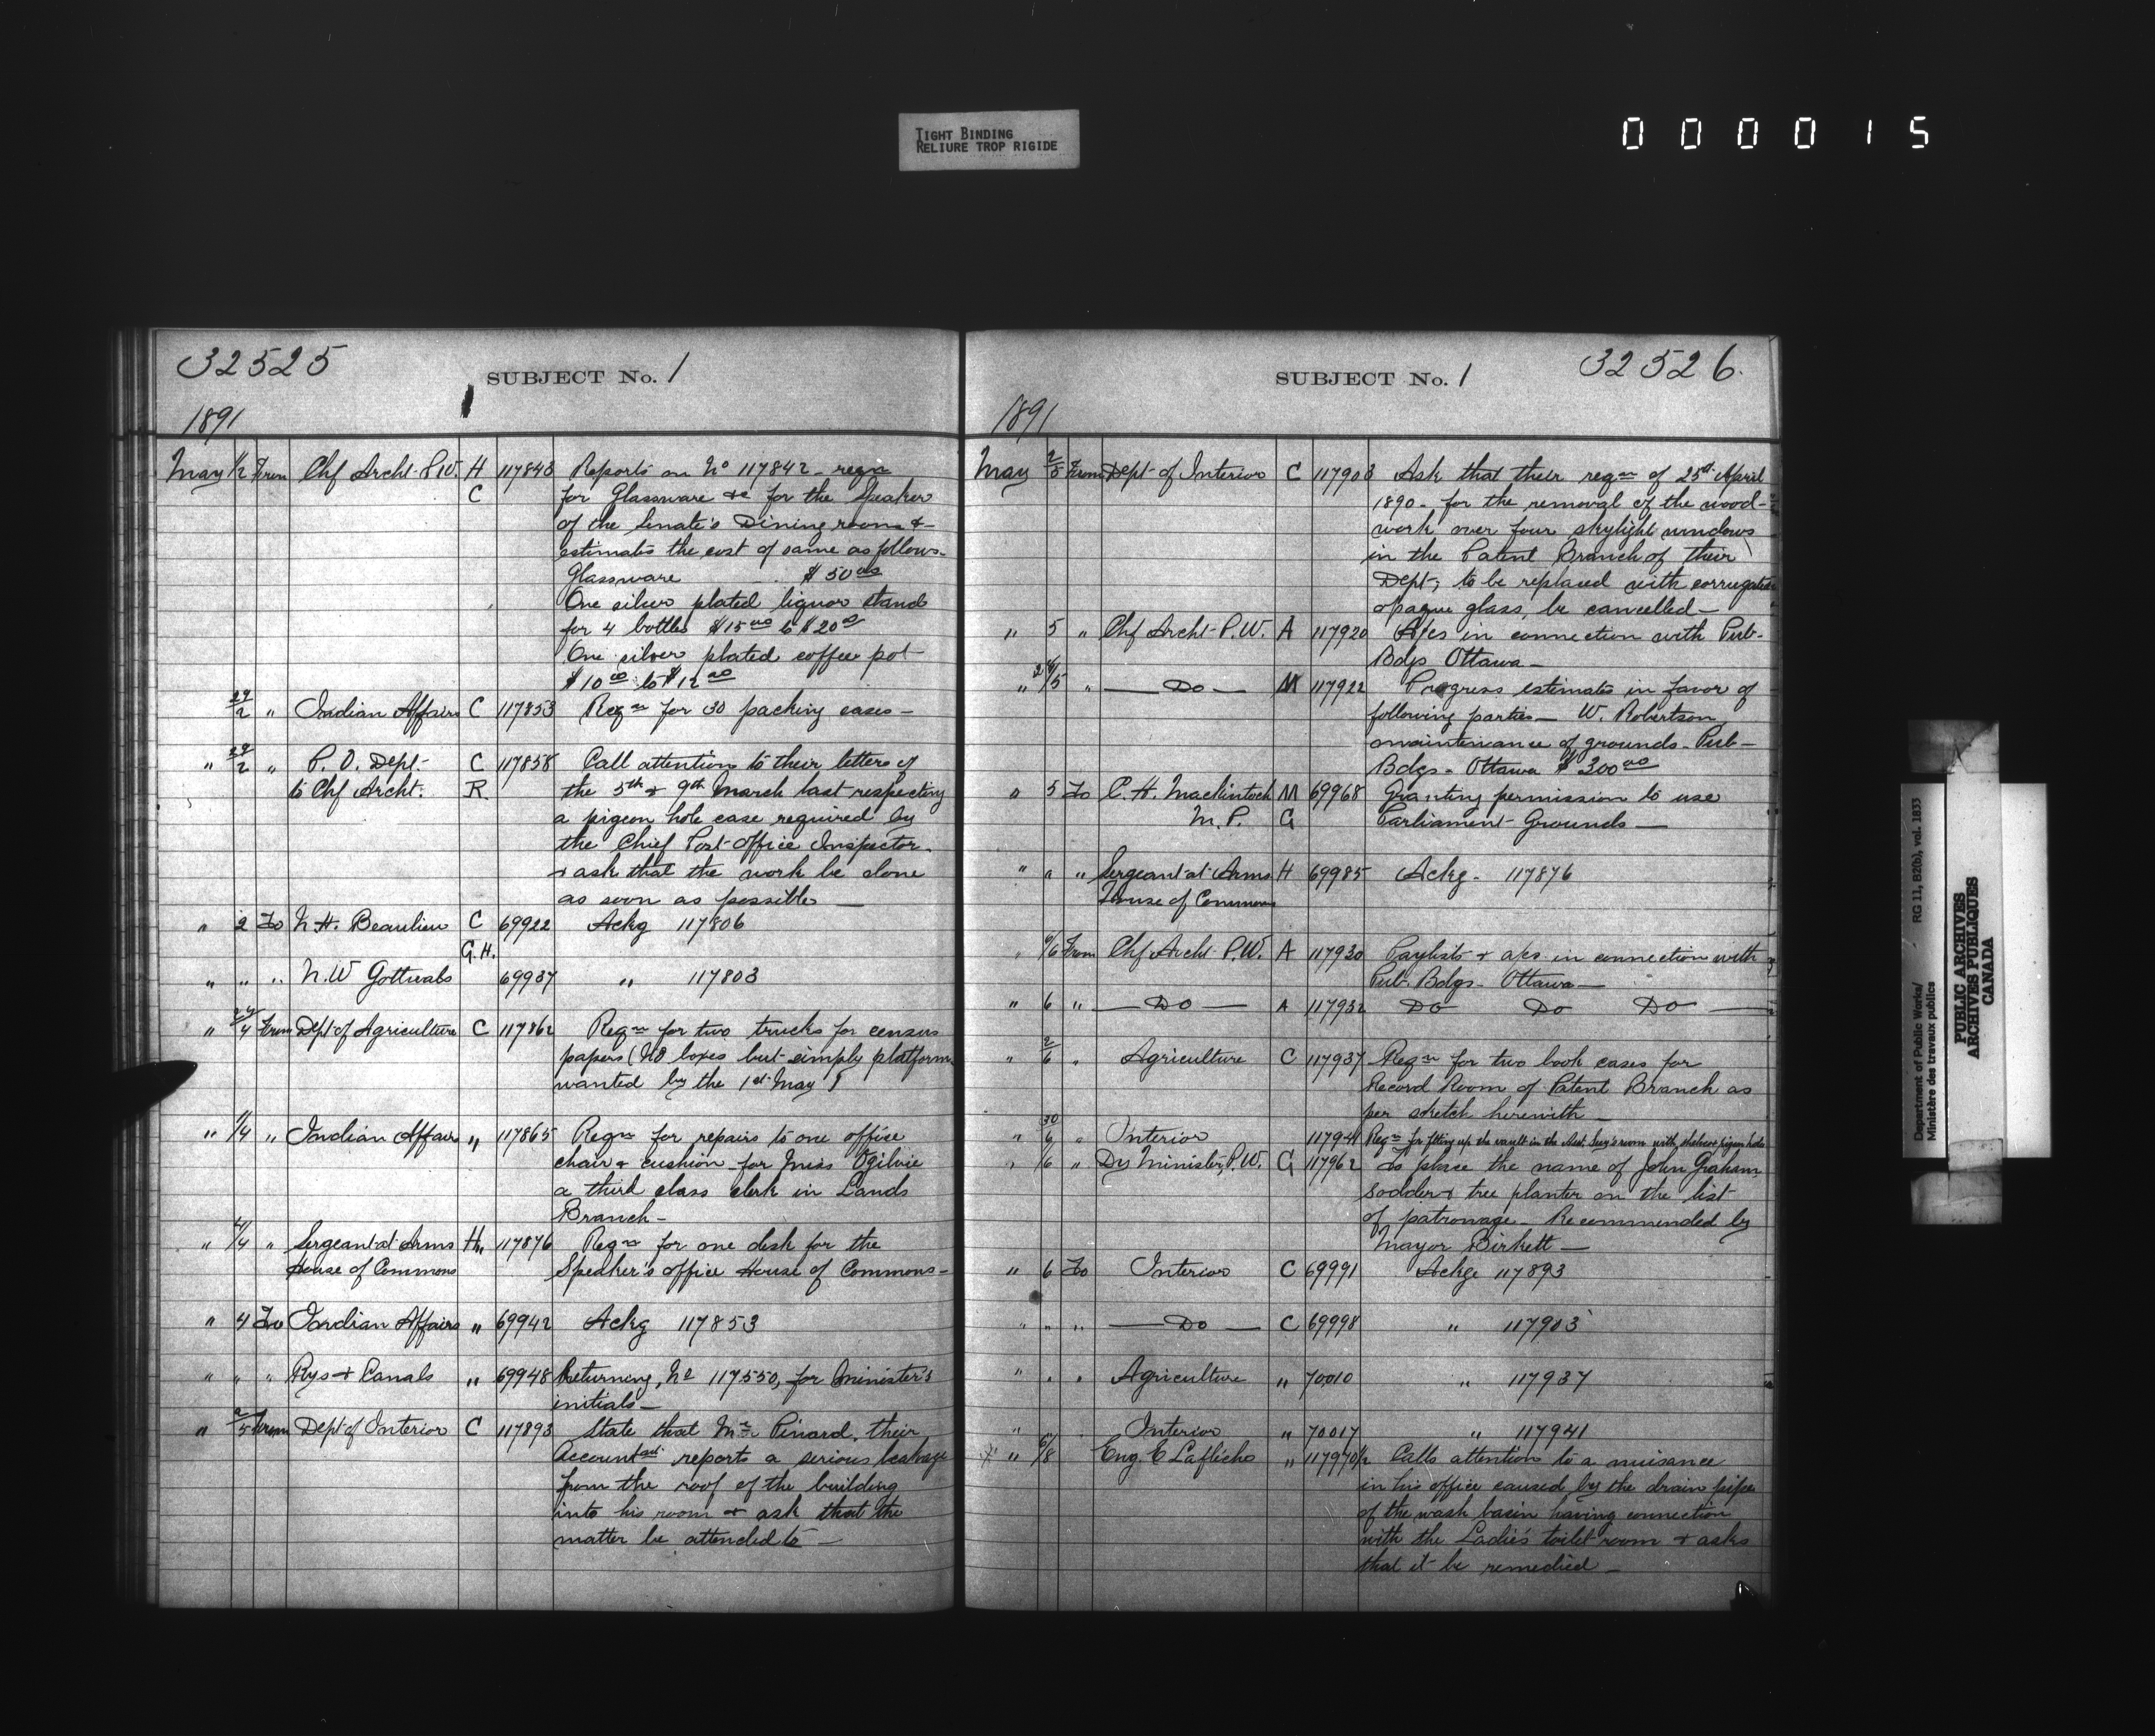 TIGHT BINDING
RELIURE TROP RIGIDE
000015
32525
SUBJECT No. 1
1891
May 1/2 From Chf Archt P.W. H 117843 Reports on No 117842 - reqn
C for Glassware &c for the Speaker
of the Senate's Dining room &
estimates the cost of same as follows-
Glassware $50 00
One silver plated liquor stand
for 4 bottles $15 00 to $20 00
One silver plated coffee pot
$10 00 to $12 00
29/2 " Indian Affairs C 117853 Reqn for 30 packing cases -
" 29/2 " P. O. Dept- C 117858 Call attention to their letters of
to Chf Archt. R. the 5th & 9th March last respecting
a pigeon hole case required by
the Chief Post-office Inspector.
& ask that the work be done
as soon as possible —
" 2 To N. H. Beaulieu C 69922 Ackg 117806
G. H.
" " " N. W Gottwals 69937 " 117803
" 24/4 From Dept of Agriculture C 117862 Reqn for two trucks for census
papers (No boxes but simply platform
wanted by the 1st May)
" 1/4 " Indian Affairs " 117865 Reqn for repairs to one office
chair & cushion for Miss Ogilvie
a third class clerk in Lands
Branch -
" 4/4 " Sergeant at Arms H" 117876 Reqn for one desk for the
House of Commons Speaker's office House of Commons -
" 4 To Indian Affairs " 69942 Ackg 117853
" " " Rys & Canals " 69948 Returning, No 117550, for Minister's
initials —
" 2/5 From Dept of Interior C 117893 State that Mr. Pinard, their
Accountant reports a serious leakage
from the roof of the building
into his room & ask that the
matter be attended to —
SUBJECT No. 1
32526.
1891
May 2/5 From Dept of Interior C 117903 Ask that their reqn of 25th April
1890 - for the removal of the wood-
work over four skylight windows
in the Patent Branch of their
Dept; to be replaced with corrugated
opaque glass, be cancelled —
" 5 " Chf Archt P.W. A 117920 A/cs in connection with Pub-
Bdgs Ottawa —
" 24/5 " — Do — M 117922 Progress estimates in favor of
following parties — W. Robertson,
maintenance of grounds - Pub-
Bdgs - Ottawa $300 00
" 5 To C. H. Mackintosh M 69968 Granting permission to use
M. P. G Parliament Grounds —
" " " Sergeant at Arms H 69985 Ackg. 117876
House of Commons
" 6/6 From Chf Archt P.W. A 117930 Paylists & a/cs in connection with
Pub Bdgs - Ottawa —
" 6 " — Do — A 117932 Do Do Do —
" 2/6 " Agriculture C 117937 Reqn for two book cases for
Record Room of Patent Branch as
per sketch herewith —
" 30/6 " Interior 117941 Reqn for fitting up the vault in the room with shelves & pigeon holes
" /6 " Dy Minister P.W. G 117962 To place the name of John Graham,
sodder & tree planter on the list
of patronage - Recommended by
Mayor Birkett —
" 6 To Interior C 69991 Ackge 117893
" " " — Do — C 69998 " 117903
" " " Agriculture " 70010 " 117937
" Interior " 70017 " 117941
" 6/8 Eug. E Laflèche " 117970 1/2 Calls attention to a nuisance
in his office caused by the drain pipe
of the wash basin having connection
with the Ladie's toilet room & asks
that it be remedied —
Department of Public Works/
Ministère des travaux publics
RG 11, B2(b), vol. 1833
PUBLIC ARCHIVES
ARCHIVES PUBLIQUES
CANADA